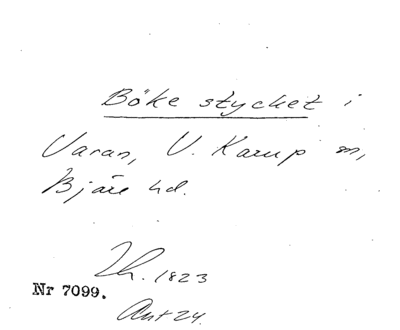 Böke stycket i
Varan, V. Karup sn,
Bjäre hd.
Lh. 1823
Nr 7099.
Ant 24.